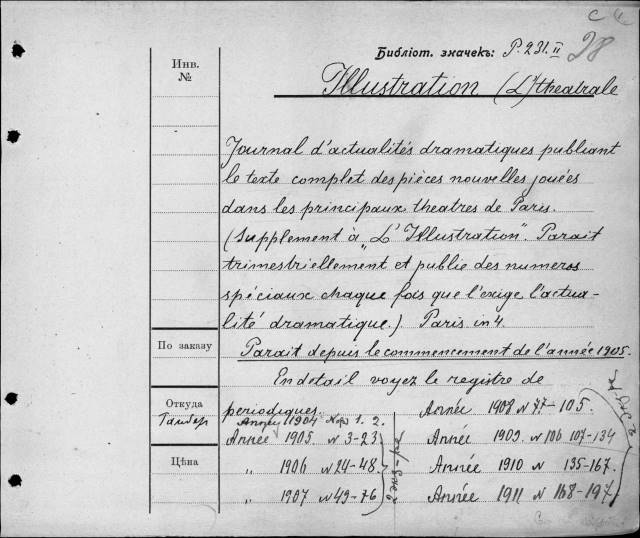 Библіот. значекъ: P. 231. II
28
Инв.
№
Illustration (L') theatrale
Journal d'actualités dramatiques publiant
le texte complet des pièces nouvelles jouées
dans les principaux theatres de Paris.
(Supplement à „L'Illustration". Parait
trimestriellement et publie des numeros
spéciaux chaque fois que l'exige l'actua-
lité dramatique.) Paris in 4.
По заказу
Parait depuis le commencement de l'année 1905.
En detail voyez le registre de
periodiques.
Откуда
Année 1904 1. 2.
Année 1905 N 3-23
„ 1906 N 24-48.
„ 1907 N 49-76
2 экз-ра
Année 1908 N 77-105.
Année 1909. N 106 107-134
Année 1910 N 135-167.
Année 1911 N 168-197
Цѣна